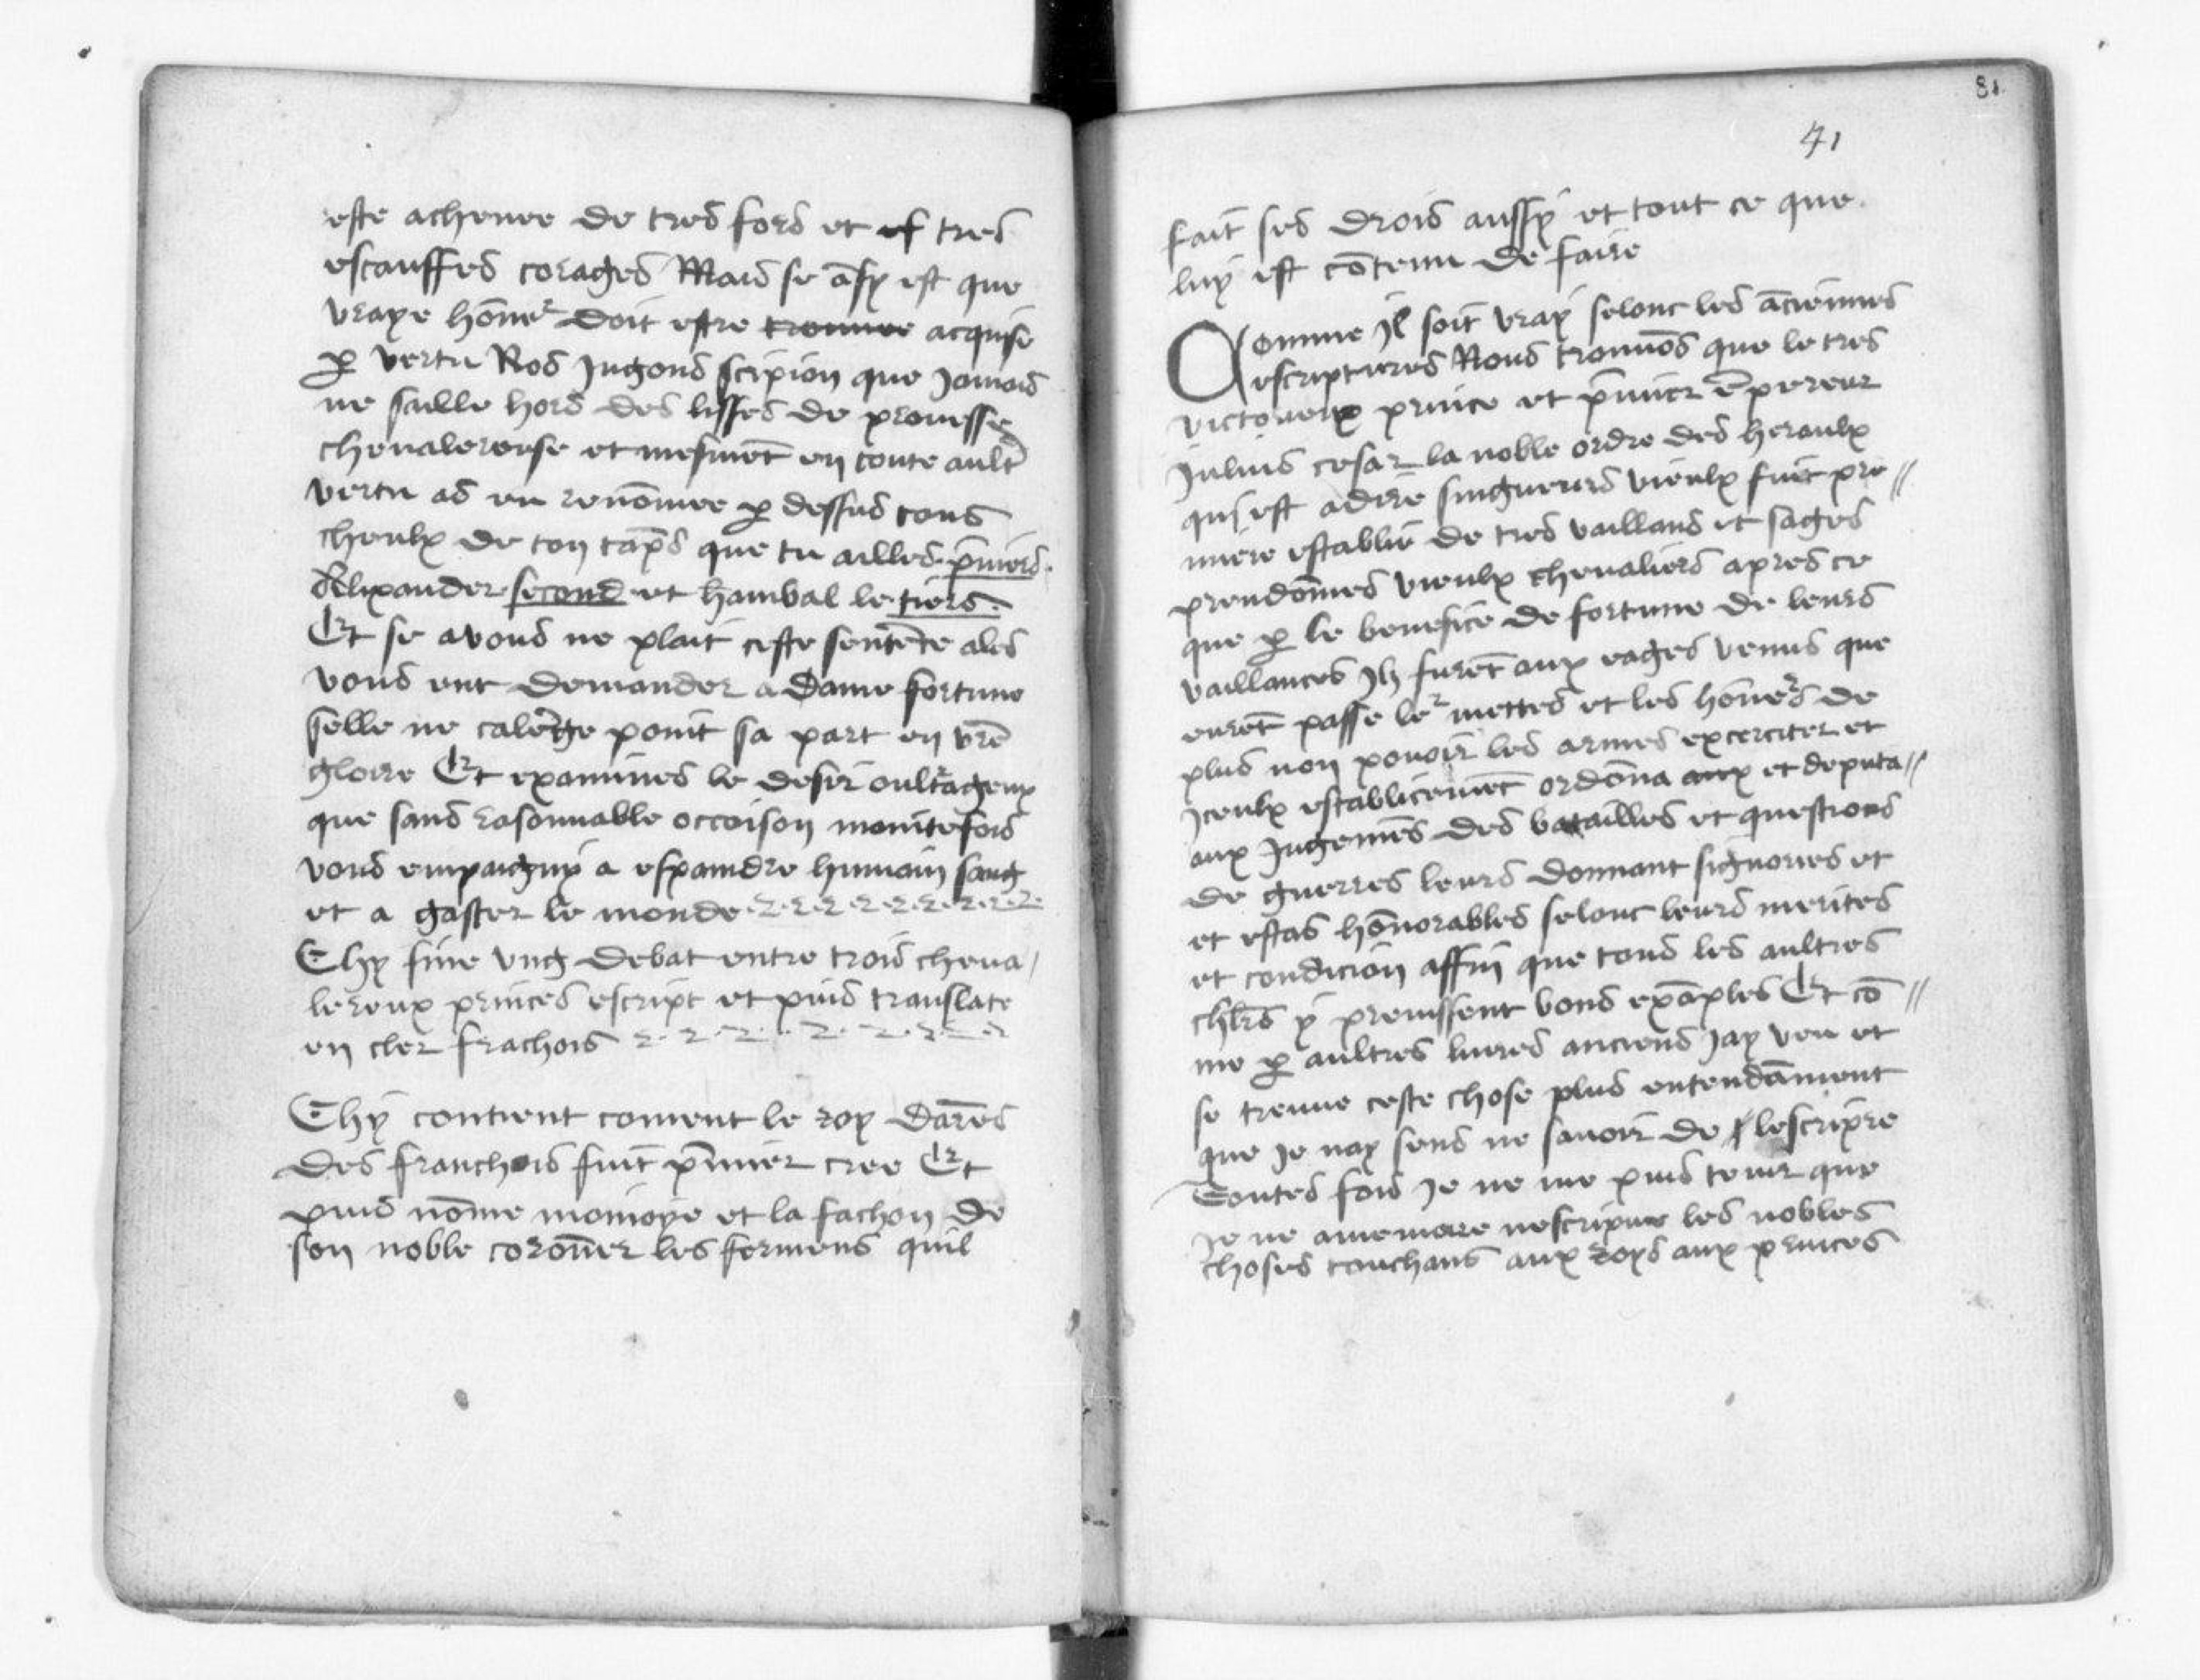 este achevee de tres fors et ef tres
escauffes corages Mais se āsy est que
vraye hōner doit estre trouvee acquise
p vertu Nos Jugons scipion que Jamais
ne saille hors des lisses de prouesse
chevalereuse et mesmēt en toute ault
vertu as eu renōmee p dessus tous
cheulx de ton tāps que tu ailles p̄miers
Alixander second et hanibal le tiers.
Et se a vous ne plait ceste sentēce ales
vous ent demander a dame fortune
selle ne calēge point sa part en vrē
gloire Et examines le desir oultrageux
que sans rasonnable occoison moultefois
vous empaigny a espandre humain sang
et a gaster le monde
Chy fine ung debat entre trois cheva/
lereux princes escript et puis translate
en cler frachois
Chy contient coment le roy darēs
des franchois fuit p̄mier cree Et
puis nōme monioye et la fachon de
son noble corōner les sermens quil
81
41
fait ses drois aussy et tout ce que
luy est cōtenu de faire
Comme Jl soit vray selonc les āciennes
escriptures Nous trouvōs que le tres
victorieux prince et p̄mier ēpereur
Julius cesar la noble ordre des heraulx
qui est adire singuliers vieulx fuit pre//
miere establie de tres vaillans et sages
preudōmes vieulx chevaliers apres ce
que p le benefice de fortune de leurs
vaillances Jlz furēt aux eages venus que
eurēt passe ler mettes et les hōners de
plus non povoir les armes excerciter et
Jceulx establicemēt ordōna aux et deputa//
aux Jugemēs des batailles et questions
de guerres leurs donnant signories et
et estas hōnorables selonc leurs merites
et condicion affin que tous les aultres
chlrs y prenissent bons exāples Et cō//
me p aultres livres anciens Jay veu et
se treuve ceste chose plus entendāment
que Je nay sens ne savoir de lescripre
Toutes fois Je ne me puis tenir que
Je ne amemore nescripve les nobles
choses touchans aux roys aux princes